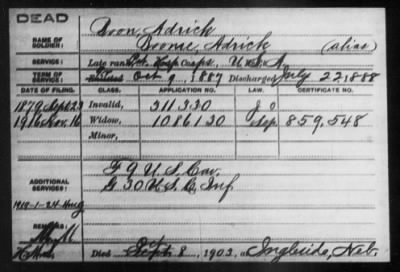 DEAD
Doon, Adrick
NAME OF SOLDIER: Doonie, Adrick (alias)
SERVICE: Late rank, Pvt. Hosp Corps, U.S.A.
TERM OF SERVICE: Enlisted Oct 9, 1887 Discharged July 23, 1888
DATE OF FILING. CLASS. APPLICATION NO. LAW. CERTIFICATE NO.
1879 Sept 23 Invalid, 311.330
1916 Nov. 16 Widow, 1086130 859,548
Minor,
F 9 U.S. Cav.
ADDITIONAL SERVICES: G 30 U.S.C. Inf
REMARKS:
Died Sept 8, 1902, at Ingleside, Neb.